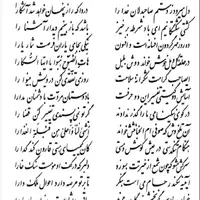 دل میرود ز دستم صاحبدلان خدا را دردا که راز پنهان خواهد شد آشکارا
کشتی شکستگانیم ای باد شرطه برخیز باشد که باز بینیم دیدار آشنا را
ده روزه مهر گردون افسانه است و افسون نیکی بجای یاران فرصت شمار یارا
در حلقه گل و مل خوش خواند دوش بلبل هات الصبوح هبوا یا ایها السکارا
ای صاحب کرامت شکرانه سلامت روزی تفقدی کن درویش بینوا را
آسایش دو گیتی تفسیر این دو حرفست با دوستان مروت با دشمنان مدارا
در کوی نیکنامی ما را گذر ندادند گر تو نمی پسندی تغییر کن قضا را
آن تلخ وش که صوفی ام الخبائثش خواند اشهی لنا و احلی من قبلة العذارا
هنگام تنگدستی در عیش کوش و مستی کاین کیمیای هستی قارون کند گدا را
سرکش مشو که چون شمع از غیرتت بسوزد دلبر که در کف او موم است سنگ خارا
آیینه سکندر جام می است بنگر تا بر تو عرضه دارد احوال ملک دارا